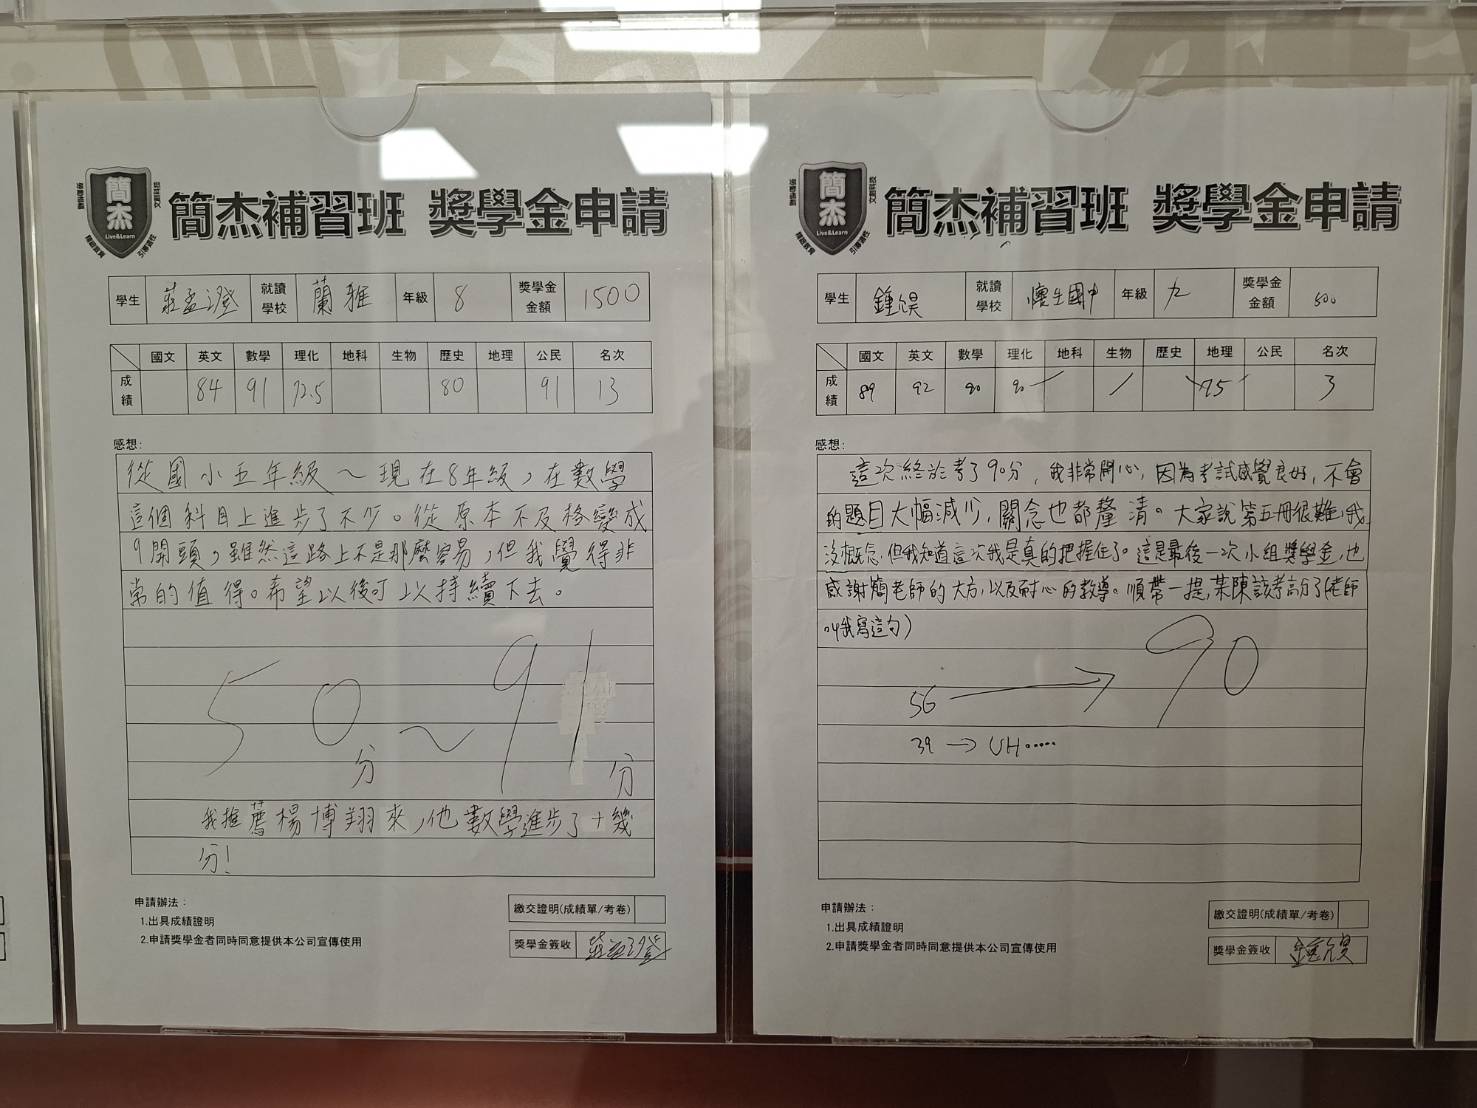 簡杰
Live&Learn
簡杰補習班 獎學金申請
學生 莊孟澄 就讀學校 蘭雅 年級 8 獎學金金額 1500
國文 英文 數學 理化 地科 生物 歷史 地理 公民 名次
成績 84 91 72.5 80 91 13
感想:
從國小五年級～現在8年級,在數學
這個科目上進步了不少。從原本不及格變成
9開頭,雖然這路上不是那麼容易,但我覺得非
常的值得。希望以後可以持續下去。
50分～91分
我推薦楊博翔來,他數學進步了十幾
分!
申請辦法：
1.出具成績證明
2.申請獎學金者同時同意提供本公司宣傳使用
繳交證明(成績單/考卷)
獎學金簽收 莊孟澄
簡杰
Live&Learn
簡杰補習班 獎學金申請
學生 鍾 就讀學校 懷生國中 年級 九 獎學金金額 500
國文 英文 數學 理化 地科 生物 歷史 地理 公民 名次
成績 89 92 90 90 95 3
感想:
這次終於考了90分,我非常開心,因為考試感覺良好,不會
的題目大幅減少,關念也都釐清。大家說第五冊很難,我
沒概念,但我知道這次我是真的把握住了。這是最後一次小組獎學金,也
感謝簡老師的大方,以及耐心的教導。順帶一提,某陳該考高分了(老師
叫我寫這句)
56 → 90
39 → UH.....
申請辦法：
1.出具成績證明
2.申請獎學金者同時同意提供本公司宣傳使用
繳交證明(成績單/考卷)
獎學金簽收